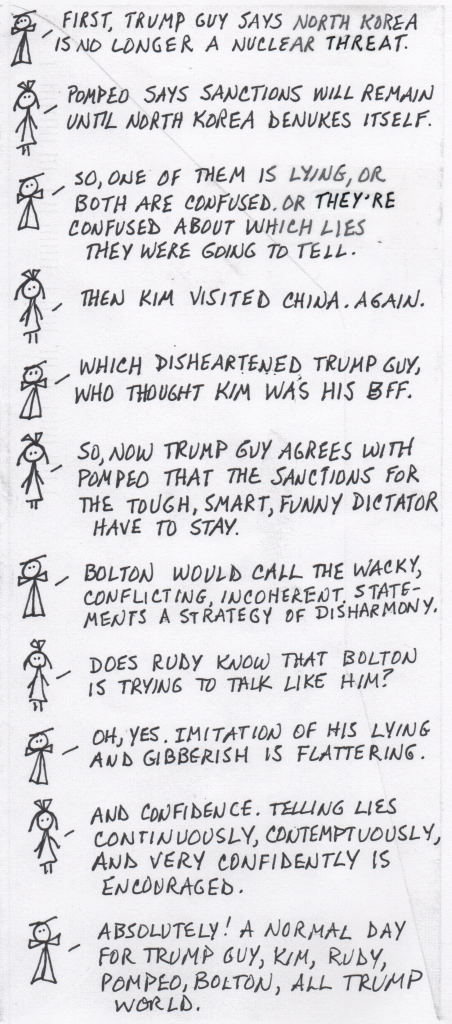 FIRST, TRUMP GUY SAYS NORTH KOREA
IS NO LONGER A NUCLEAR THREAT.
POMPEO SAYS SANCTIONS WILL REMAIN
UNTIL NORTH KOREA DENUKES ITSELF.
SO, ONE OF THEM IS LYING, OR
BOTH ARE CONFUSED. OR THEY'RE
CONFUSED ABOUT WHICH LIES
THEY WERE GOING TO TELL.
THEN KIM VISITED CHINA. AGAIN.
WHICH DISHEARTENED TRUMP GUY,
WHO THOUGHT KIM WAS HIS BFF.
SO, NOW TRUMP GUY AGREES WITH
POMPEO THAT THE SANCTIONS FOR
THE TOUGH, SMART, FUNNY DICTATOR
HAVE TO STAY.
BOLTON WOULD CALL THE WACKY,
CONFLICTING, INCOHERENT STATE-
MENTS A STRATEGY OF DISHARMONY.
DOES RUDY KNOW THAT BOLTON
IS TRYING TO TALK LIKE HIM?
OH, YES. IMITATION OF HIS LYING
AND GIBBERISH IS FLATTERING.
AND CONFIDENCE. TELLING LIES
CONTINUOUSLY, CONTEMPTUOUSLY,
AND VERY CONFIDENTLY IS
ENCOURAGED.
ABSOLUTELY! A NORMAL DAY
FOR TRUMP GUY, KIM, RUDY,
POMPEO, BOLTON, ALL TRUMP
WORLD.